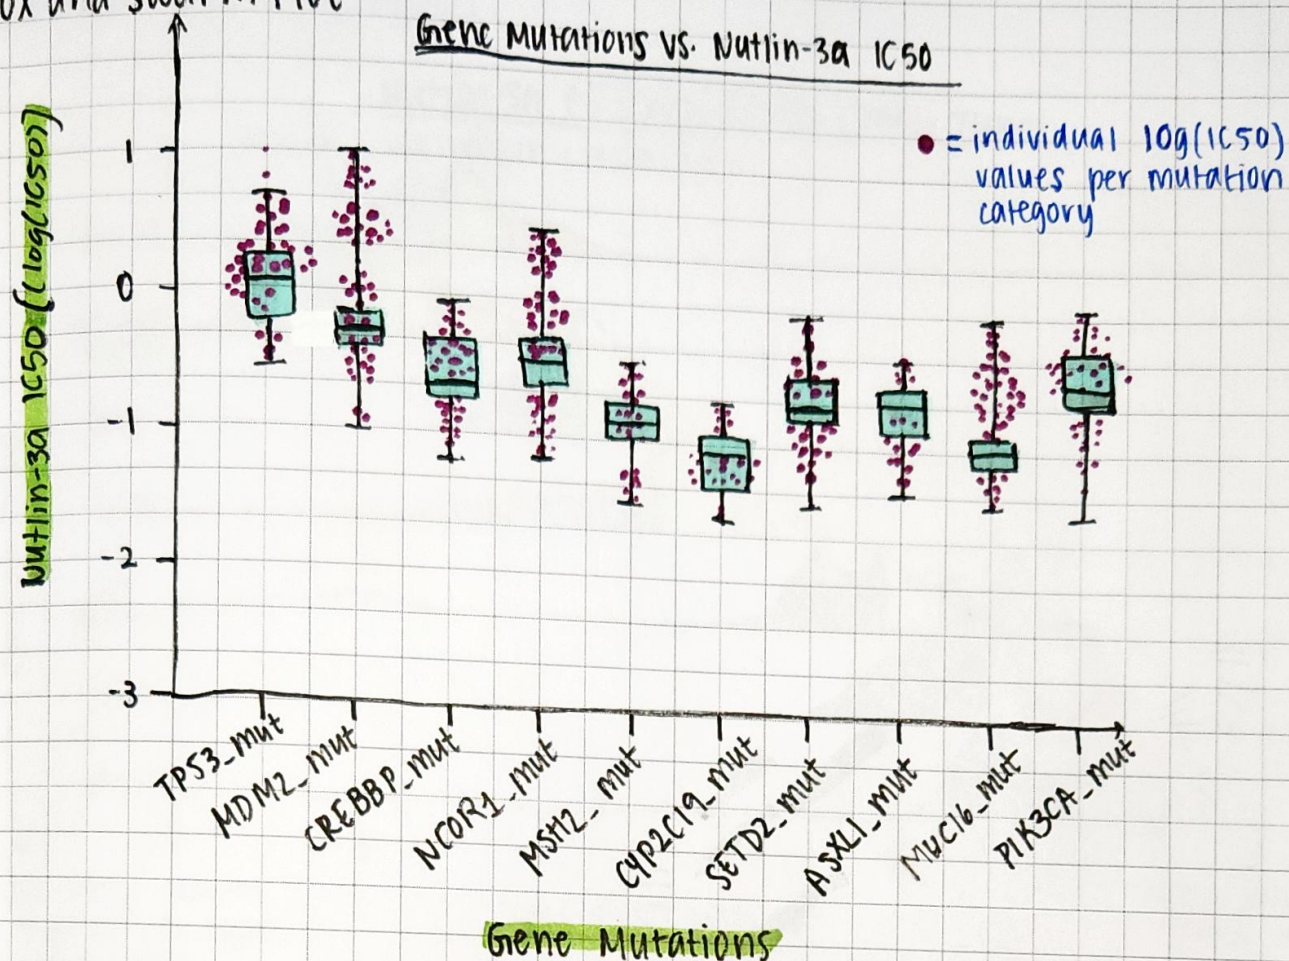 Box and swarm Plot
Gene Mutations vs. Nutlin-3a IC50
= individual log(IC50)
values per mutation
category
Nutlin-3a IC50 [(log(IC50)]
1
0
-1
-2
-3
TP53_mut
MDM2_mut
CREBBP_mut
NCOR1_mut
MSH2_mut
CYP2C19_mut
SETD2_mut
ASXL1_mut
MUC16_mut
PIK3CA_mut
Gene Mutations